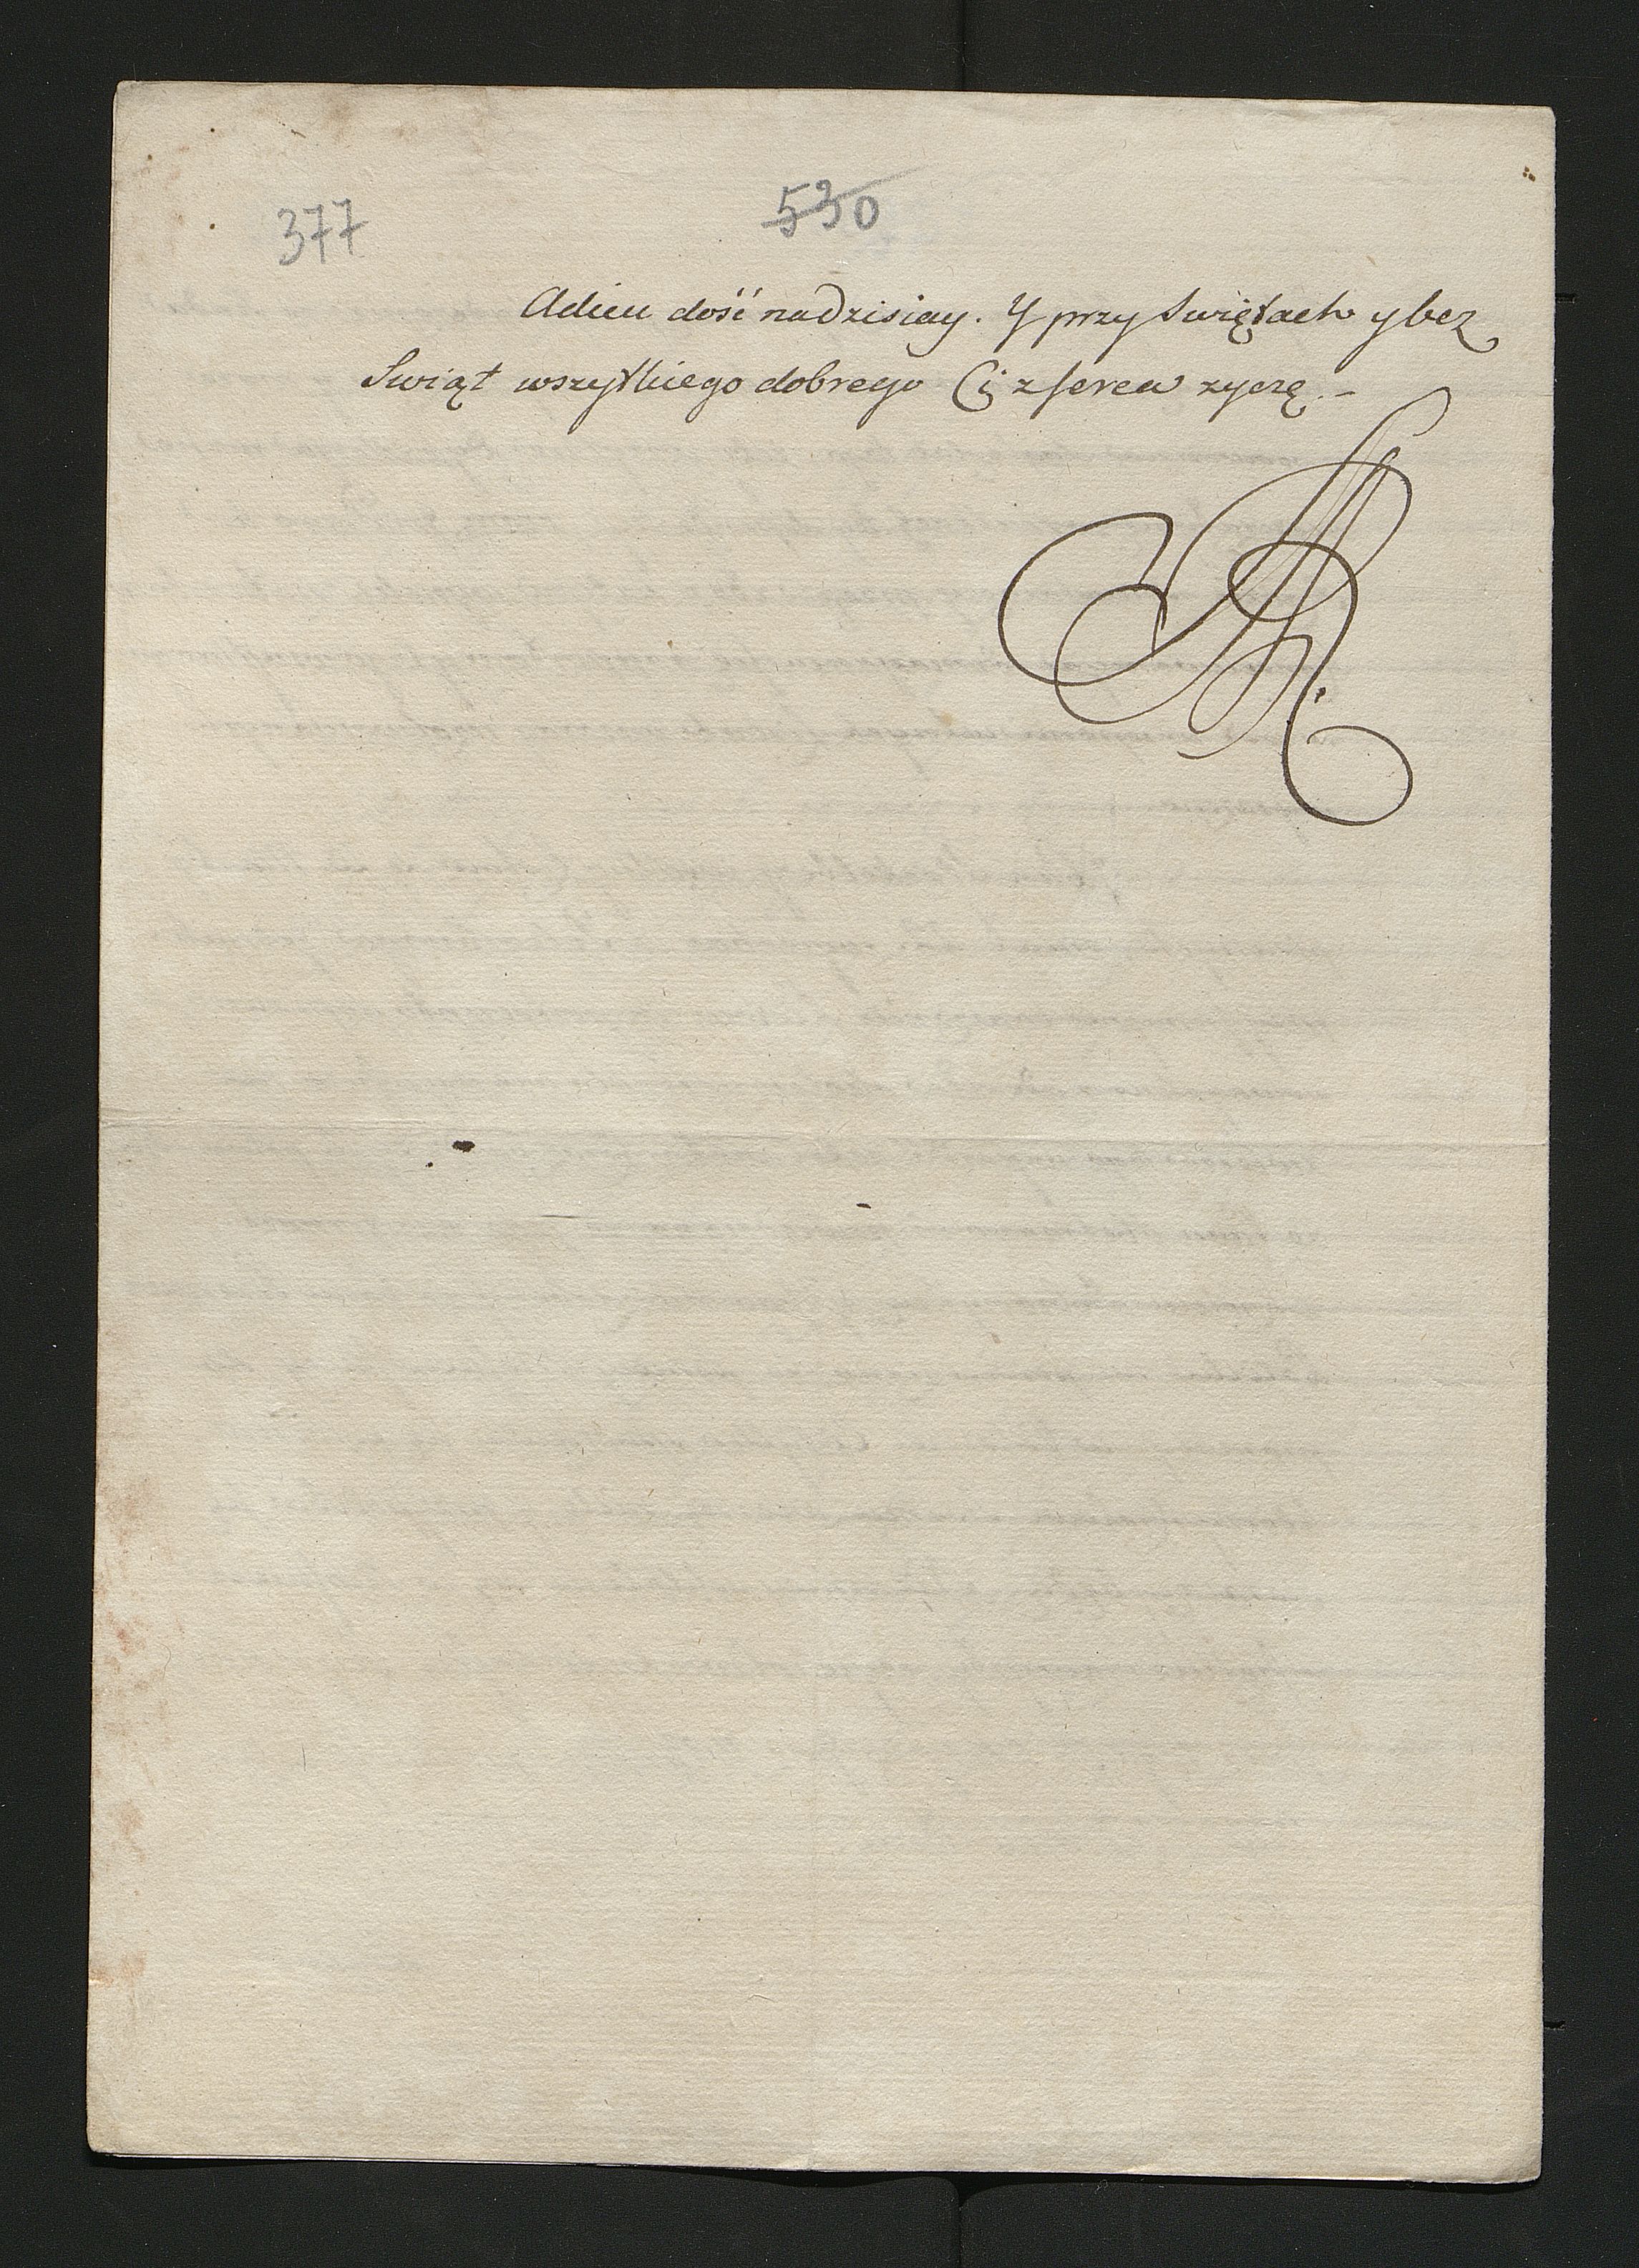 377
530
Adieu dość na dzisiay. Y przy Swiętach y bez
Swiąt wszystkiego dobrego Ci z serca zyczę. –